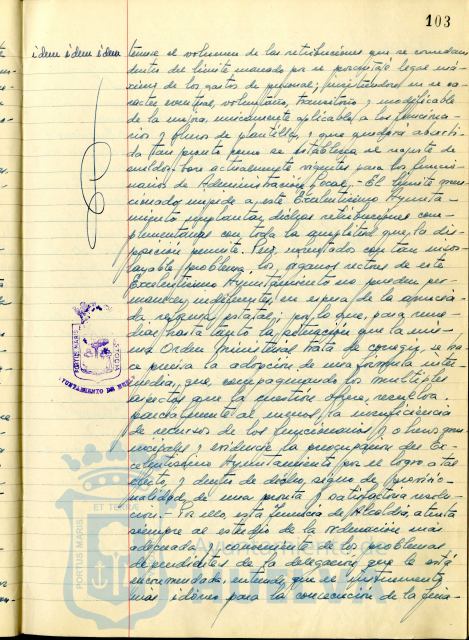 103
idem idem idem
tenerse el volumen de las retribuciones que se concedan
dentro del límite marcado por el porcentaje legal má-
ximo de los gastos de personal; insistiendo en su ca-
racter eventual, voluntario, transitorio y modificable
de la mejora, unicamente aplicable a los funciona-
rios y fijos de plantilla, y que quedará absorbi-
da tan pronto como se establezca el reajuste de
sueldos base actualmente vigentes para los funcio-
narios de Administración Local.- El límite men-
cionado, impide a este Excelentísimo Ayunta-
miento implantar dichas retribuciones com-
plementarias con toda la amplitud que la dis-
posición permite. Pero, enfrentados con tan inso-
layable problema, los órganos rectores de este
Excelentísimo Ayuntamiento no pueden per-
manecer indiferentes, en espera de la anuncia-
da reforma estatal; por lo que, para reme-
diar hasta tanto la situación que la mis-
ma Orden Ministerial trata de corregir, se ha-
ce precisa la adopción de una fórmula inter-
media, que, compaginando los multiples
aspectos que la cuestión ofrece, resuelva
parcialmente al menos, la insuficiencia
de recursos de los funcionarios y otros
y evidencie la preocupación del Ex-
celentísimo Ayuntamiento por el logro a tal
efecto, y dentro de dicho signo de provisio-
nalidad, de una pronta y satisfactoria resolu-
ción.- Por ello esta Tenencia de Alcaldía, atenta
siempre al estudio de la ordenación más
adecuada y conveniente de los problemas
dependientes de la delegación que le está
encomendada, entiende que el instrumento
más idóneo para la consecución de la
PORTUS MARIS
AYUNTAMIENTO DE
ET TERRA
PORTUS MARIS
Ayuntamiento de